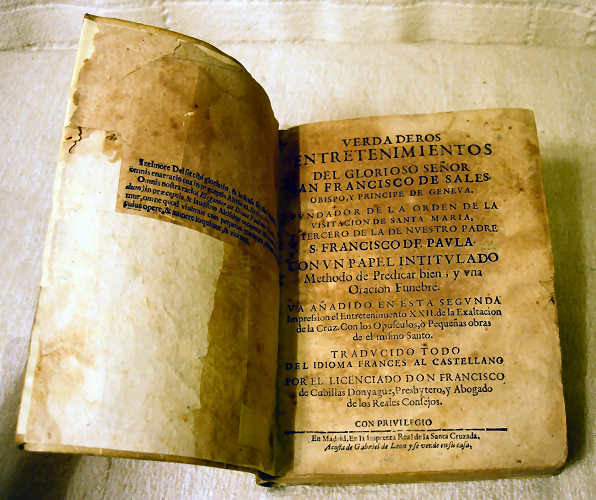 VERDADEROS
ENTRETENIMIENTOS
DEL GLORIOSO SEÑOR
SAN FRANCISCO DE SALES,
OBISPO, Y PRINCIPE DE GENEVA.
FVNDADOR DE LA ORDEN DE LA
VISITACION DE SANTA MARIA,
TERCERO DE LA DE NVESTRO PADRE
S. FRANCISCO DE PAVLA.
CON VN PAPEL INTITVLADO
Methodo de Predicar bien, y vna
Oracion Funebre.
VA AÑADIDO EN ESTA SEGVNDA
Impression el Entretenimiento XXII. de la Exaltacion
de la Cruz. Con los Opusculos, ò Pequeñas obras
de el mismo Santo.
TRADVCIDO TODO
DEL IDIOMA FRANCES AL CASTELLANO
POR EL LICENCIADO DON FRANCISCO
de Cubillas Donyague, Presbytero, y Abogado
de los Reales Consejos.
CON PRIVILEGIO
En Madrid, En la Imprenta Real de la Santa Cruzada,
Acosta de Gabriel de Leon y se vende en su casa,